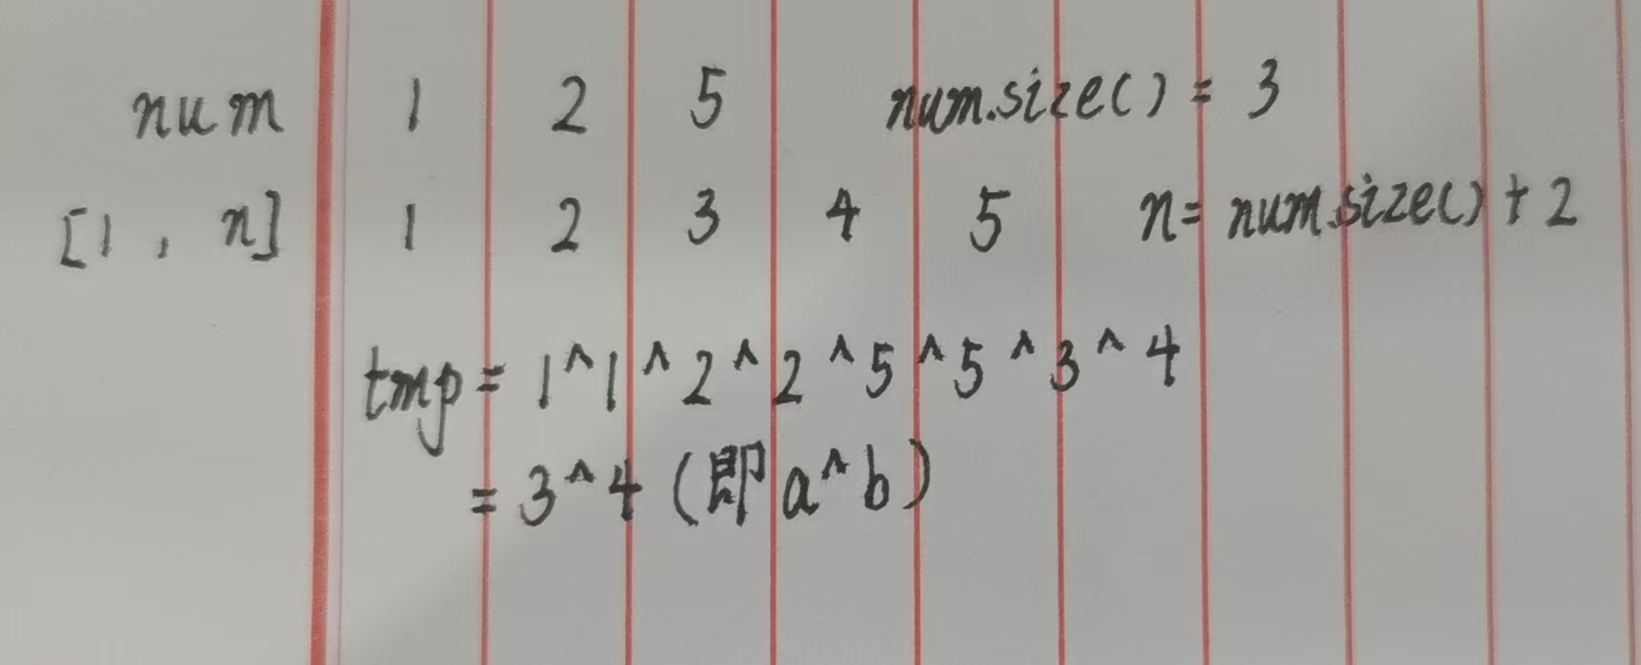 num 1 2 5 num.size() = 3
[1 , n] 1 2 3 4 5 n = num.size() + 2
tmp = 1^1^2^2^5^5^3^4
= 3^4 (即 a^b)